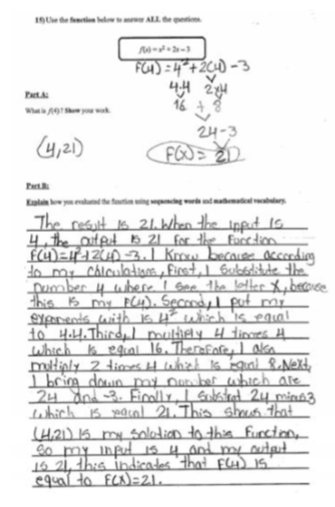 15) Use the function below to answer ALL the questions.
f(x) = x² + 2x - 3
F(4) = 4² + 2(4) - 3
Part A:
4·4 2×4
What is f(4)? Show your work.
16 + 8
24-3
(4,21)
F(x) = 21
Part B:
Explain how you evaluated the function using sequencing words and mathematical vocabulary.
The result is 21. When the input is
4, the output is 21 for the function
F(4)=4²+2(4)-3. I know because according
to my calculations, First, I substitute the
number 4 where I see the letter x, because
this is my F(4). Second, I put my
exponents with is 4² which is equal
to 4.4. Third, I multiply 4 times 4
which is equal 16. Therefore, I also
multiply 2 times 4 which is equal 8. Next,
I bring down my number which are
24 and -3. Finally, I substrat 24 minus 3
which is equal 21. This shows that
(4,21) is my solution to this function,
so my input is 4 and my output
is 21, this indicates that F(4) is
equal to F(x)=21.